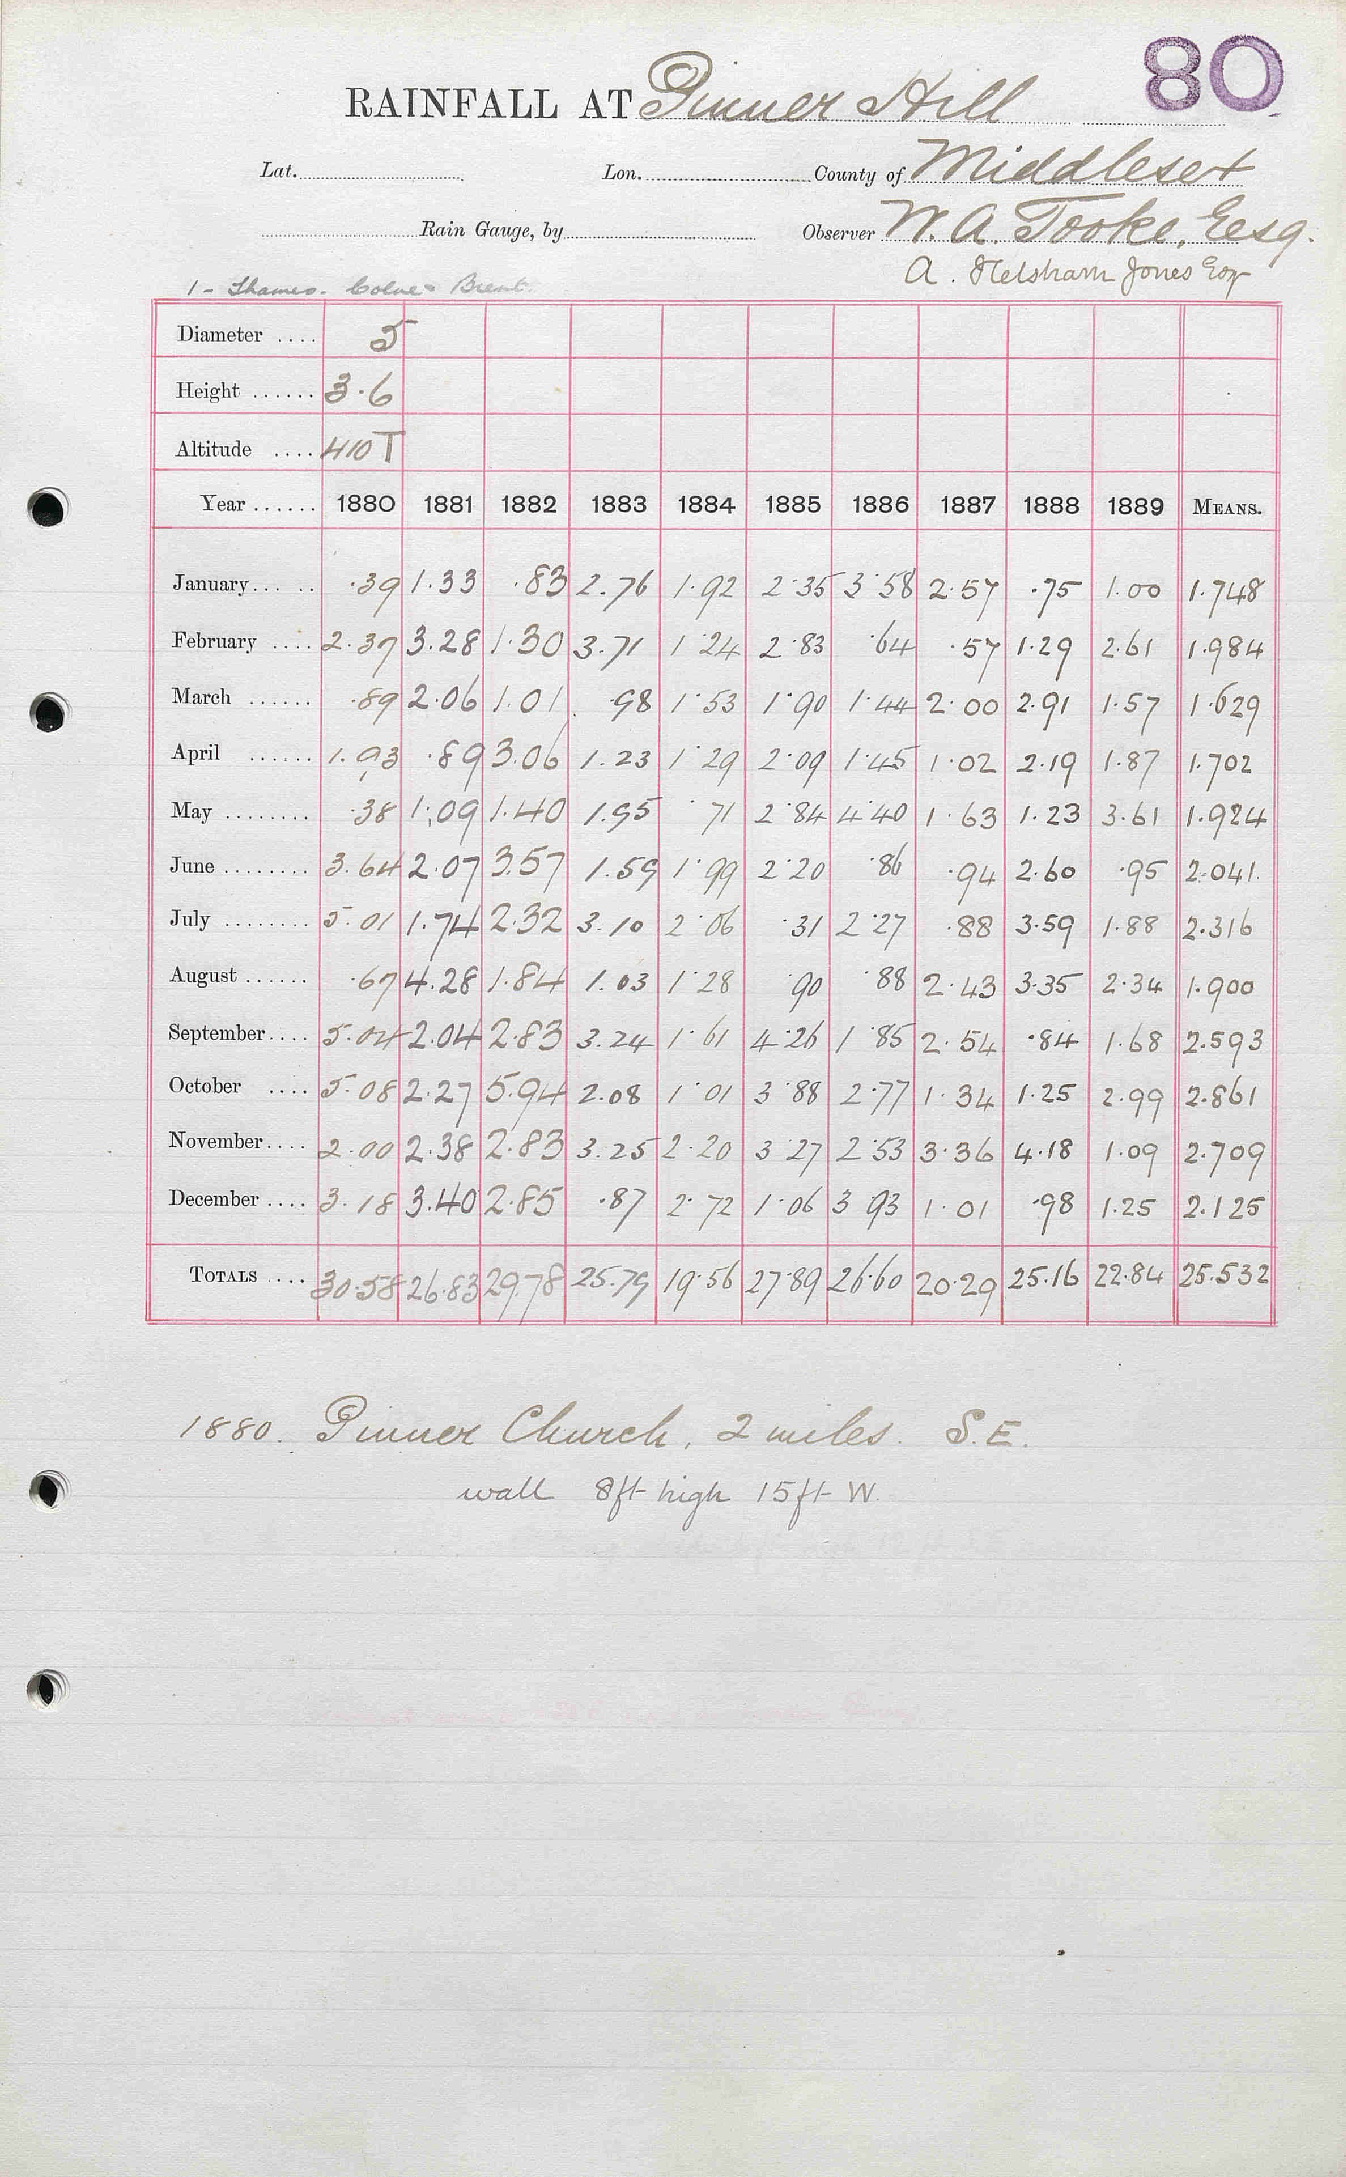 80
RAINFALL AT Pinner Hill
Lat. Lon. County of Middlesex
Rain Gauge, by Observer W. A. Tooke, Esq.
A. Helsham Jones Esq
1 - Thames. Colne & Brent.
Diameter .... 5
Height ...... 3.6
Altitude .... 410 T
Year ...... 1880 1881 1882 1883 1884 1885 1886 1887 1888 1889 MEANS.
January... .. .39 1.33 .83 2.76 1.92 2.35 3.58 2.57 .75 1.00 1.748
February .... 2.37 3.28 1.30 3.71 1.24 2.83 .64 .57 1.29 2.61 1.984
March ...... .89 2.06 1.01 .98 1.53 1.90 1.44 2.00 2.91 1.57 1.629
April ...... 1.93 .89 3.06 1.23 1.29 2.09 1.45 1.02 2.19 1.87 1.702
May ........ .38 1.09 1.40 1.95 .71 2.84 4.40 1.63 1.23 3.61 1.924
June ........ 3.64 2.07 3.57 1.59 1.99 2.20 .86 .94 2.60 .95 2.041
July ........ 5.01 1.74 2.32 3.10 2.06 .31 2.27 .88 3.59 1.88 2.316
August ...... .67 4.28 1.84 1.03 1.28 .90 .88 2.43 3.35 2.34 1.900
September.... 5.04 2.04 2.83 3.24 1.61 4.26 1.85 2.54 .84 1.68 2.593
October .... 5.08 2.27 5.94 2.08 1.01 3.88 2.77 1.34 1.25 2.99 2.861
November.... 2.00 2.38 2.83 3.25 2.20 3.27 2.53 3.36 4.18 1.09 2.709
December .... 3.18 3.40 2.85 .87 2.72 1.06 3.93 1.01 .98 1.25 2.125
TOTALS .... 30.58 26.83 29.78 25.79 19.56 27.89 26.60 20.29 25.16 22.84 25.532
1880. Pinner Church, 2 miles. S.E.
wall 8ft high 15ft W.